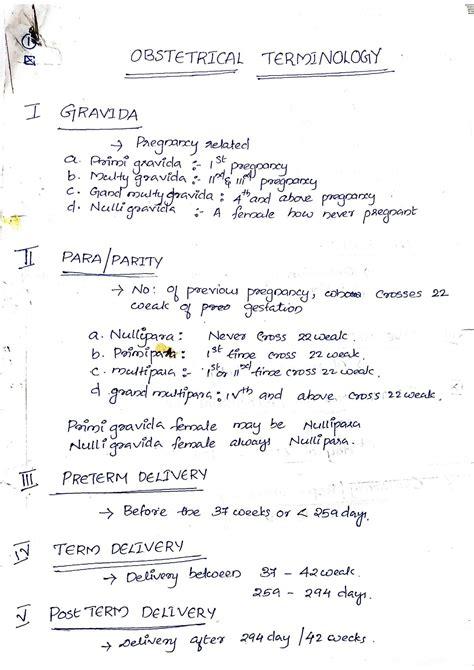 OBSTETRICAL TERMINOLOGY
I GRAVIDA
→ Pregnancy related
a. Primi gravida :- 1st pregnancy
b. Multy gravida :- IInd & IIIrd pregnancy
c. Gand multy gravida : 4th and above pregnancy
d. Nulli gravida :- A female how never pregnant
II PARA/PARITY
→ No: of previous pregnancy, crosses 22
weak of gestation
a. Nullipara : Never cross 22 weak.
b. Primipara : 1st time cross 22 weak.
c. multipara :- 1st or IInd time cross 22 weak.
d grand multipara : IVth and above cross 22 weak.
Primi gravida female may be Nullipara
Nulli gravida female always Nullipara.
III PRETERM DELIVERY
→ Before the 37 weeks or < 259 days.
IV TERM DELIVERY
→ Delivery between 37 - 42 weak.
259 - 294 days.
V POST TERM DELIVERY
→ Delivery after 294 day / 42 weeks.